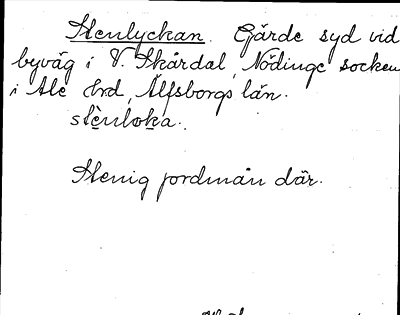 Stenlyckan. Gärde syd vid
byväg i V. Skårdal, Nödinge socken
i Ale hrd, Älfsborgs län.
stènloka.
Stenig jordmån där.